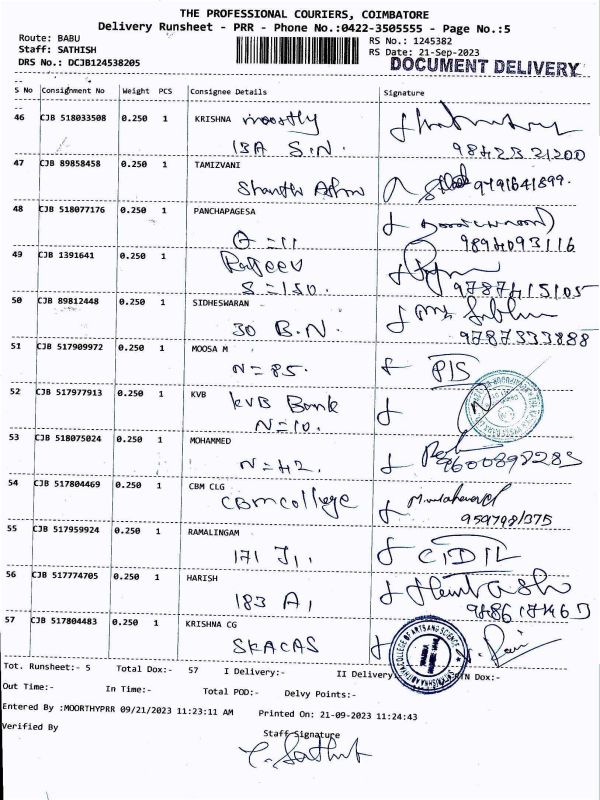 THE PROFESSIONAL COURIERS, COIMBATORE
Delivery Runsheet - PRR - Phone No.:0422-3505555 - Page No.:5
Route: BABU
RS No.: 1245382
Staff: SATHISH
RS Date: 21-Sep-2023
DRS No.: DCJB124538205
DOCUMENT DELIVERY
S No Consignment No Weight PCS Consignee Details Signature
46 CJB 518033508 0.250 1 KRISHNA moostly
13A S.N. 9842321200
47 CJB 89858458 0.250 1 TAMIZVANI
9791641899.
48 CJB 518077176 0.250 1 PANCHAPAGESA
9894093116
49 CJB 1391641 0.250 1 Rajeev
S=150. 9787415105
50 CJB 89812448 0.250 1 SIDHESWARAN
30 B.N. 9787333888
51 CJB 517909972 0.250 1 MOOSA M
N=85.
52 CJB 517977913 0.250 1 KVB
KVB Bank
N=10.
53 CJB 518075024 0.250 1 MOHAMMED
N=42. 9600898285
54 CJB 517804469 0.250 1 CBM CLG
CBM college
55 CJB 517959924 0.250 1 RAMALINGAM
171 J1.
56 CJB 517774705 0.250 1 HARISH
183 A1
57 CJB 517804483 0.250 1 KRISHNA CG
SKACAS
Tot. Runsheet:- 5 Total Dox:- 57 I Delivery:- II Delivery Dox:-
Out Time:- In Time:- Total POD:- Delvy Points:-
Entered By :MOORTHYPRR 09/21/2023 11:23:11 AM Printed On: 21-09-2023 11:24:43
Verified By Staff Signature